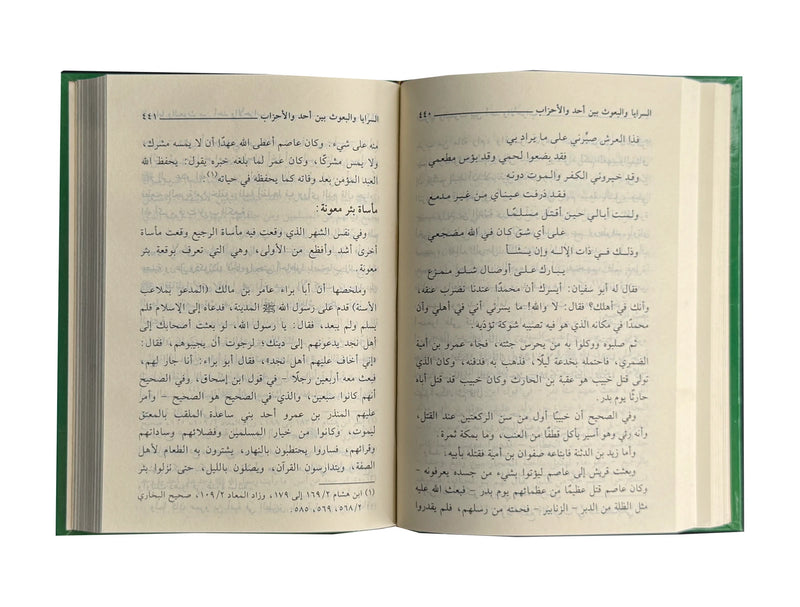 السرايا والبعوث بين أحد والأحزاب ٤٤٠
فذا العرش صبّرني على ما يراد بي
فقد بضعوا لحمي وقد بؤس مطعمي
وقد خيروني الكفر والموت دونه
فقد ذرفت عيناي من غير مدمع
ولست أبالي حين أقتل مسلمًا
على أي شق كان في الله مضجعي
وذلك في ذات الإله وإن يشأ
يبارك على أوصال شلو ممزع
فقال له أبو سفيان: أيسرك أن محمدًا عندنا تضرب عنقه،
وأنك في أهلك؟ فقال: لا والله! ما يسرني أني في أهلي وأن
محمدًا في مكانه الذي هو فيه تصيبه شوكة تؤذيه.
ثم صلبوه ووكلوا به من يحرس جثته، فجاء عمرو بن أمية
الضمري، فاحتمله بخدعة ليلًا، فذهب به فدفنه، وكان الذي
تولى قتل خبيب هو عقبة بن الحارث وكان خبيب قد قتل أباه
حارثًا يوم بدر.
وفي الصحيح أن خبيبًا أول من سن الركعتين عند القتل،
وأنه رئي وهو أسير يأكل قطفًا من العنب، وما بمكة ثمرة.
وأما زيد بن الدثنة فابتاعه صفوان بن أمية فقتله بأبيه.
وبعثت قريش إلى عاصم ليؤتوا بشيء من جسده يعرفونه -
وكان عاصم قتل عظيمًا من عظمائهم يوم بدر - فبعث الله عليه
مثل الظلة من الدبر - الزنابير - فحمته من رسلهم، فلم يقدروا
السرايا والبعوث بين أحد والأحزاب ٤٤١
منه على شيء. وكان عاصم أعطى الله عهدًا أن لا يمسه مشرك،
ولا يمس مشركًا، وكان عمر لما بلغه خبره يقول: يحفظ الله
العبد المؤمن بعد وفاته كما يحفظه في حياته(١)
مأساة بئر معونة:
وفي نفس الشهر الذي وقعت فيه مأساة الرجيع وقعت مأساة
أخرى أشد وأفظع من الأولى، وهي التي تعرف بوقعة بئر
معونة.
وملخصها أن أبا براء عامر بن مالك (المدعو بملاعب
الأسنة) قدم على رسول الله ﷺ المدينة، فدعاه إلى الإسلام فلم
يسلم ولم يبعد، فقال: يا رسول الله، لو بعثت أصحابك إلى
أهل نجد يدعونهم إلى دينك؛ لرجوت أن يجيبوهم، فقال:
«إني أخاف عليهم أهل نجد»، فقال أبو براء: أنا جار لهم،
فبعث معه أربعين رجلًا - في قول ابن إسحاق، وفي الصحيح
أنهم كانوا سبعين، والذي في الصحيح هو الصحيح - وأمر
عليهم المنذر بن عمرو أحد بني ساعدة الملقب بالمعنق
ليموت، وكانوا من خيار المسلمين وفضلائهم وساداتهم
وقرائهم، فساروا يحتطبون بالنهار، يشترون به الطعام لأهل
الصفة، ويتدارسون القرآن، ويصلون بالليل، حتى نزلوا بئر
(١) ابن هشام ١٦٩/٢ إلى ١٧٩، وزاد المعاد ١٠٩/٢، صحيح البخاري
٥٦٨/٢، ٥٦٩، ٥٨٥.